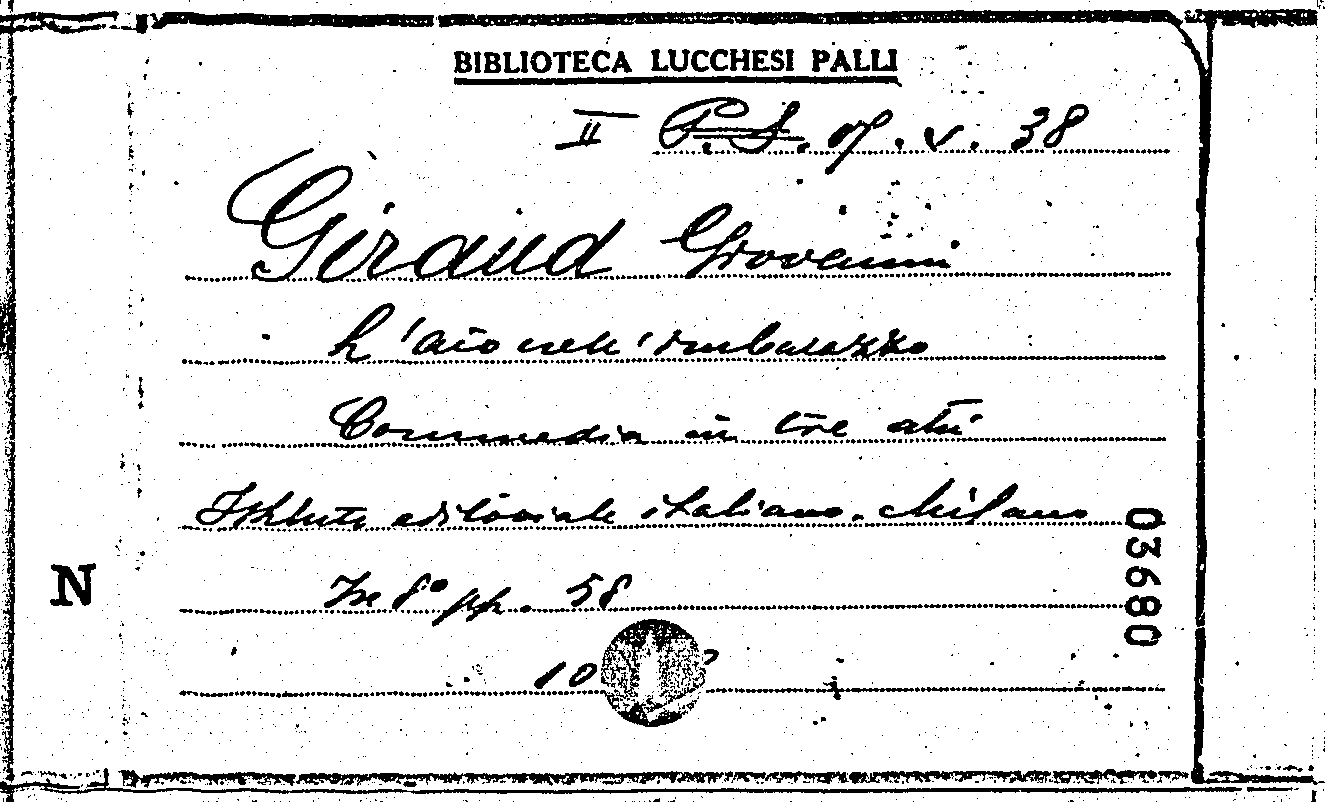 BIBLIOTECA LUCCHESI PALLI
II P. S. V. 38
Giraud Giovanni
L'aio nell'imbarazzo
Commedia in tre atti
Istituto editoriale italiano. Milano
In 8° pp. 58
10
N
03680